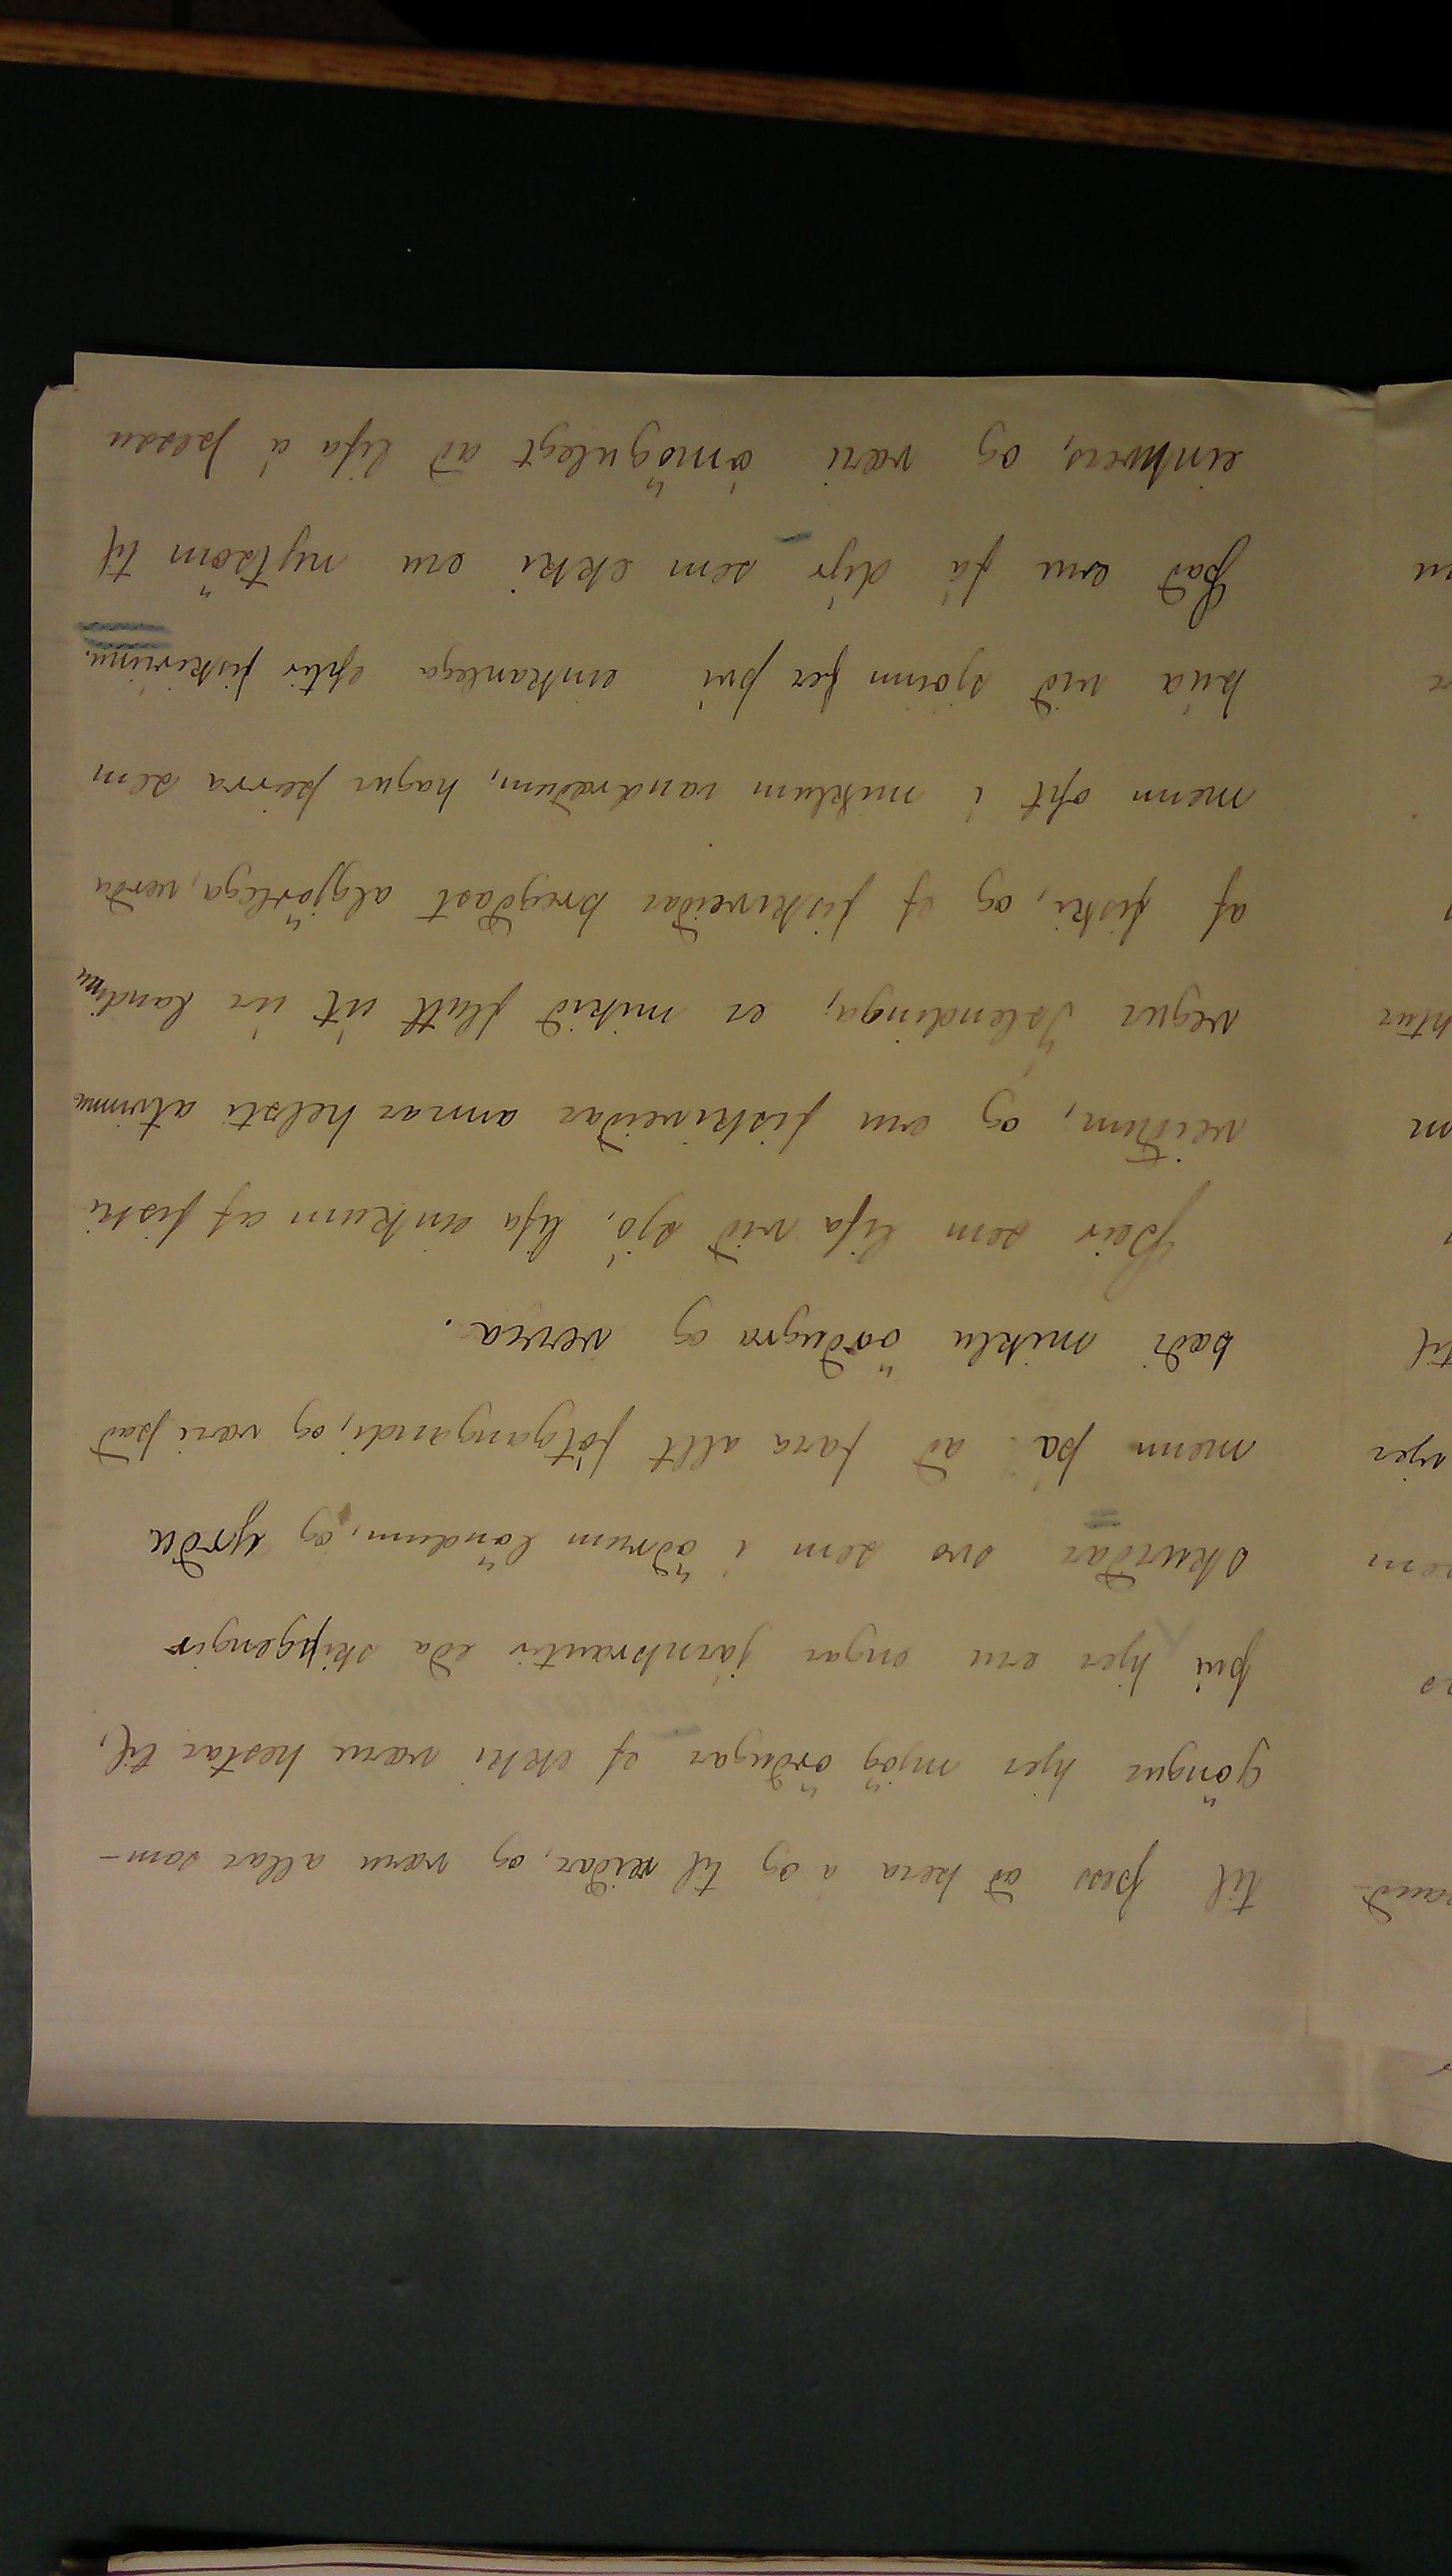 til þess að bera á og til reiðar, og væru allar sam-
göngur hjer mjög örðugar ef ekki væru hestar til,
því hjer eru engar járnbrautir eða skipgengir
skurðar svo sem í öðrum löndum, og yrðu
menn þá að fara allt fótgangandi, og væri það
bæði miklu örðugra og verra.
Þeir sem lifa við sjó, lifa einkum af fiski
veiðum, og eru fiskiveiðar annar helsti atvinnu
vegur Íslendinga, er mikið flutt út úr landinu
af fiski, og ef fiskiveiðar bregðast algjörlega, verða
menn opt í miklum vandræðum, hagur þeirra sem
búa við sjóinn fer því einkanlega eptir fiskiríinu.
Það eru fá dýr sem ekki eru nytsöm til
einhvers, og væri ómögulegt að lifa á þessu